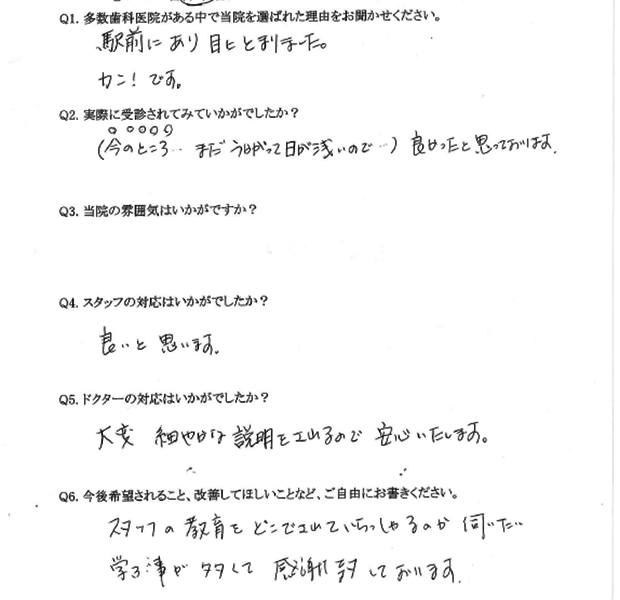 Q1. 多数歯科医院がある中で当院を選ばれた理由をお聞かせください。
駅前にあり目にとまりました。
カン！です。
Q2. 実際に受診されてみていかがでしたか？
(今のところ… まだうかがって日が浅いので…) 良かったと思っております。
Q3. 当院の雰囲気はいかがですか？
Q4. スタッフの対応はいかがでしたか？
良いと思います。
Q5. ドクターの対応はいかがでしたか？
大変 細やかな説明を下さるので 安心いたします。
Q6. 今後希望されること、改善してほしいことなど、ご自由にお書きください。
スタッフの教育をどこでされていらっしゃるのか 伺いたい…
学ぶ事が多くて 感謝して おります。